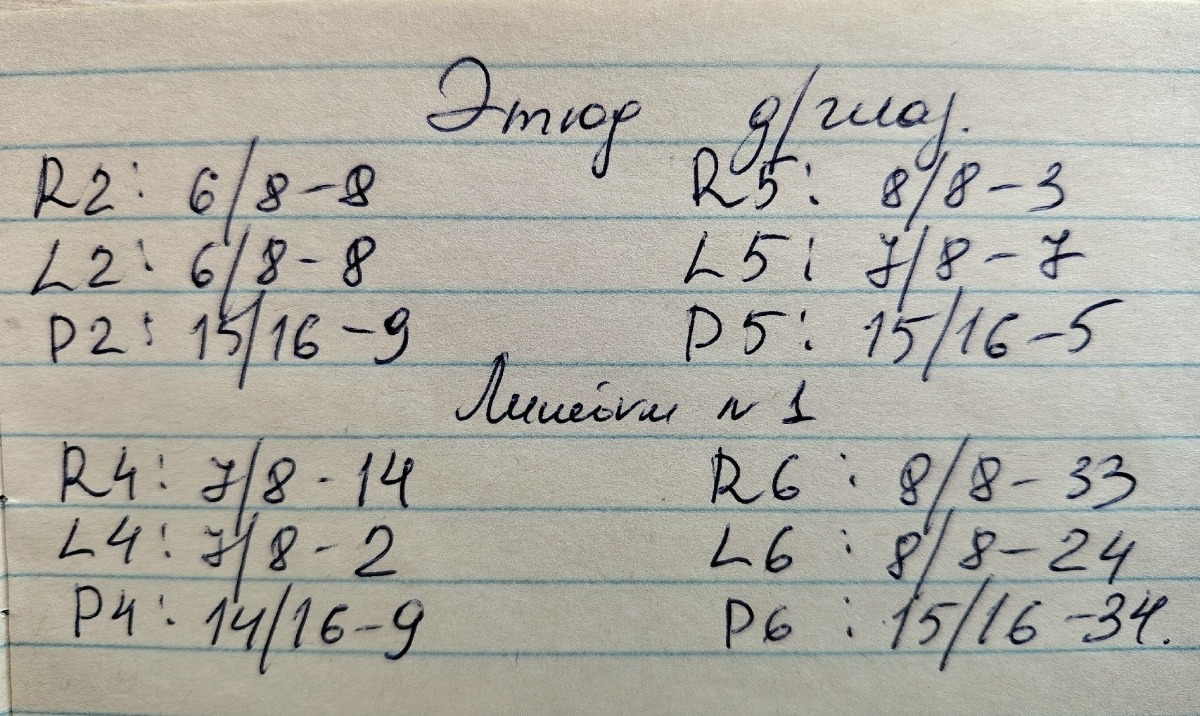 Этюд д/глаз.
R2: 6/8-8 R5: 8/8-3
L2: 6/8-8 L5: 7/8-7
P2: 15/16-9 P5: 15/16-5
Линейки n 1
R4: 7/8-14 R6: 8/8-33
L4: 7/8-2 L6: 8/8-24
P4: 14/16-9 P6: 15/16-34.